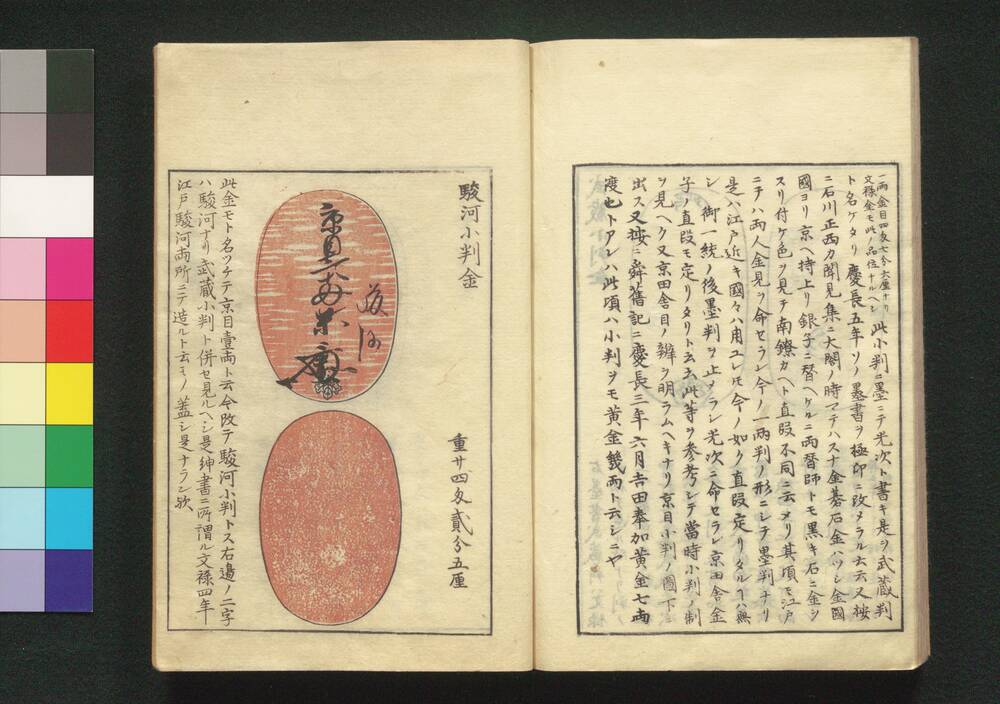 一兩金目四匁七分六厘ナリ
文祿金モ此ノ品位ナルヘシ
此小判ニ墨ニテ光次ト書キ是ヲ武藏判
ト名ケタリ慶長五年ソノ墨書ヲ極印ニ改メラル云云又按
ニ石川正西カ聞見集ニ大閤ノ時マテハスナ金碁石金ハツシ金國
國ヨリ京ヘ持上リ銀子ニ替ヘケルニ兩替師トモ黒キ石ニ金ヲ
スリ付ケ色ヲ見テ南鐐カヘト直段不同ニ云メリ其頃モ江戸
ニテハ兩人金見ヲ命セラレ今ノ一兩判ノ形ニシテ墨判ナリ
是ハ江戸近キ國々ハ用ユレモ今ノ如ク直段定リタルヿハ無
シ御一統ノ後墨判ヲ止メラレ光次ニ命セラレ京田舎金
子ノ直段モ定リタリト云云此等ヲ參考シテ當時小判ノ制
ヲ見ヘク又京田舎目ノ辨ヲ明ラムヘキナリ京目小判ノ圖下ニ
出ス又按ニ舜舊記ニ慶長三年六月吉田奉加黄金七兩
度也トアレハ此頃ハ小判ヲモ黄金幾兩ト云シニヤ
駿河小判金
重廿四匁貳分五厘
駿河
京目壹兩
此金モト名ツケテ京目壹兩ト云今改テ駿河小判トス右邊ノ二字
ハ駿河ナリ武藏小判ト併セ見ルヘシ是紳書ニ所謂ル文祿四年
江戸駿河兩所ニテ造ルト云モノ蓋シ是ナラン歟